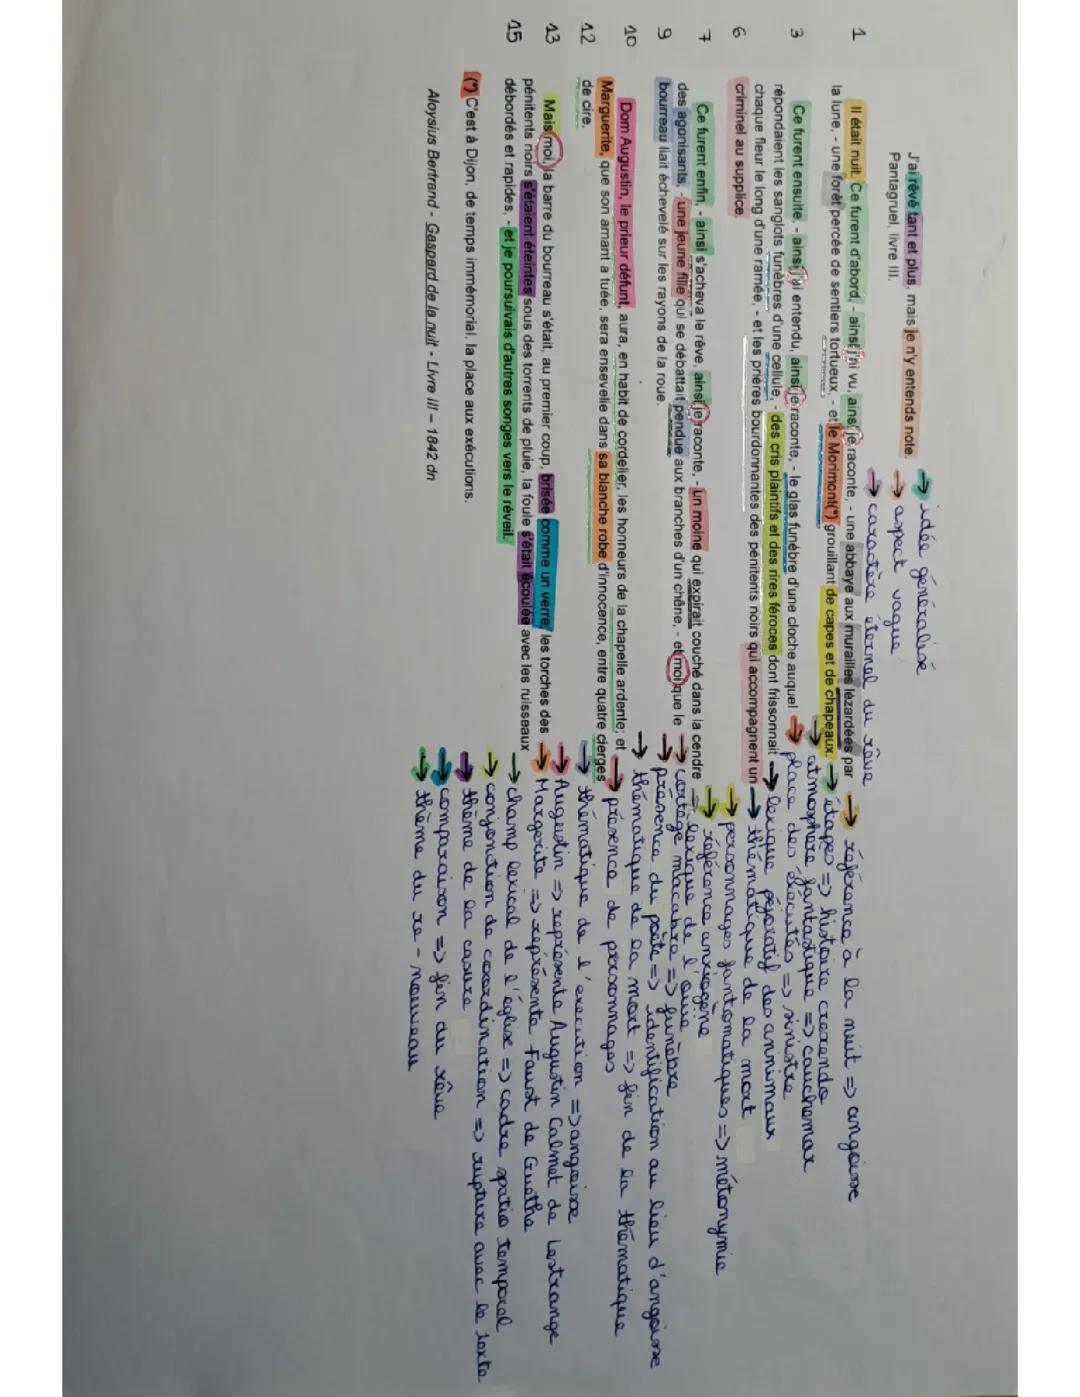 J'ai rêvé tant et plus, mais je n'y entends note.
Pantagruel, livre III.
1 Il était nuit. Ce furent d'abord, - ainsi j'ai vu, ainsi je raconte, - une abbaye aux murailles lézardées par
la lune, - une forêt percée de sentiers tortueux, - et le Morimont(*) grouillant de capes et de chapeaux.
3 Ce furent ensuite, - ainsi j'ai entendu, ainsi je raconte, - le glas funèbre d'une cloche auquel
répondaient les sanglots funèbres d'une cellule, - des cris plaintifs et des rires féroces dont frissonnait
chaque fleur le long d'une ramée, - et les prières bourdonnantes des pénitents noirs qui accompagnent un
6 criminel au supplice.
7 Ce furent enfin, - ainsi s'acheva le rêve, ainsi je raconte, - un moine qui expirait couché dans la cendre
des agonisants, - une jeune fille qui se débattait pendue aux branches d'un chêne, - et moi que le
9 bourreau liait échevelé sur les rayons de la roue.
10 Dom Augustin, le prieur défunt, aura, en habit de cordelier, les honneurs de la chapelle ardente; et
Marguerite, que son amant a tuée, sera ensevelie dans sa blanche robe d'innocence, entre quatre cierges
12 de cire.
13 Mais moi, la barre du bourreau s'était, au premier coup, brisée comme un verre, les torches des
pénitents noirs s'étaient éteintes sous des torrents de pluie, la foule s'était écoulée avec les ruisseaux
15 débordés et rapides, - et je poursuivais d'autres songes vers le réveil.
(*) C'est à Dijon, de temps immémorial, la place aux exécutions.
Aloysius Bertrand - Gaspard de la nuit - Livre III – 1842 dn
→ idée généralisé
→ aspect vague
→ caractère éternel du rêve
→ référence à la nuit => angoisse
→ étapes => histoire crescendo
→ atmosphère fantastique => cauchemar
→ place des éxecutés => sinistre
→ lexique péjoratif des annimaux
→ thématique de la mort
→ personnages fantomatiques => métonymie
→ référence anxiogène
→ lexique de l'ouïe
→ cortège macabre => funèbre
→ présence du poète => identification au lieu d'angoisse
→ thématique de la mort => fin de la thématique
→ présence de personnages
→ thématique de l'execution => angoisse
→ Augustin => représente Augustin Calmet de Lestrange
→ Margerite => représente Faust de Guethe
→ champ lexical de l'église => cadre spatio temporel
→ conjonction de coordination => rupture avec le texte
→ thème de la casure
→ comparaison => fin du rêve
→ thème du re-nouveau